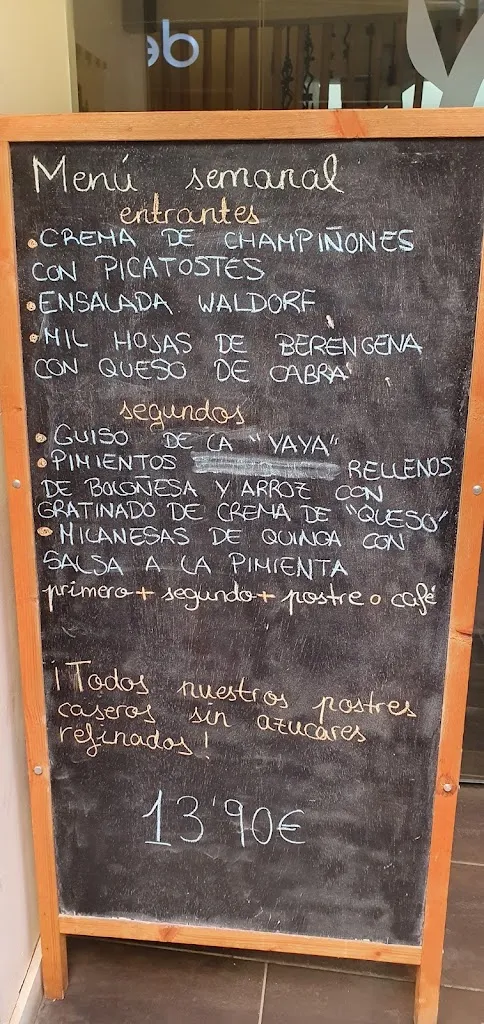 de
Menú semanal
entrantes
• CREMA DE CHAMPIÑONES
CON PICATOSTES
• ENSALADA WALDORF
• MIL HOJAS DE BERENGENA
CON QUESO DE CABRA
segundos
• GUISO DE LA "YAYA"
• PIMIENTOS RELLENOS
DE BOLOÑESA Y ARROZ CON
GRATINADO DE CREMA DE "QUESO"
• MILANESAS DE QUINOA CON
SALSA A LA PIMIENTA
primero + segundo + postre o café
¡Todos nuestros postres
caseros sin azucares
refinados!
13'90€